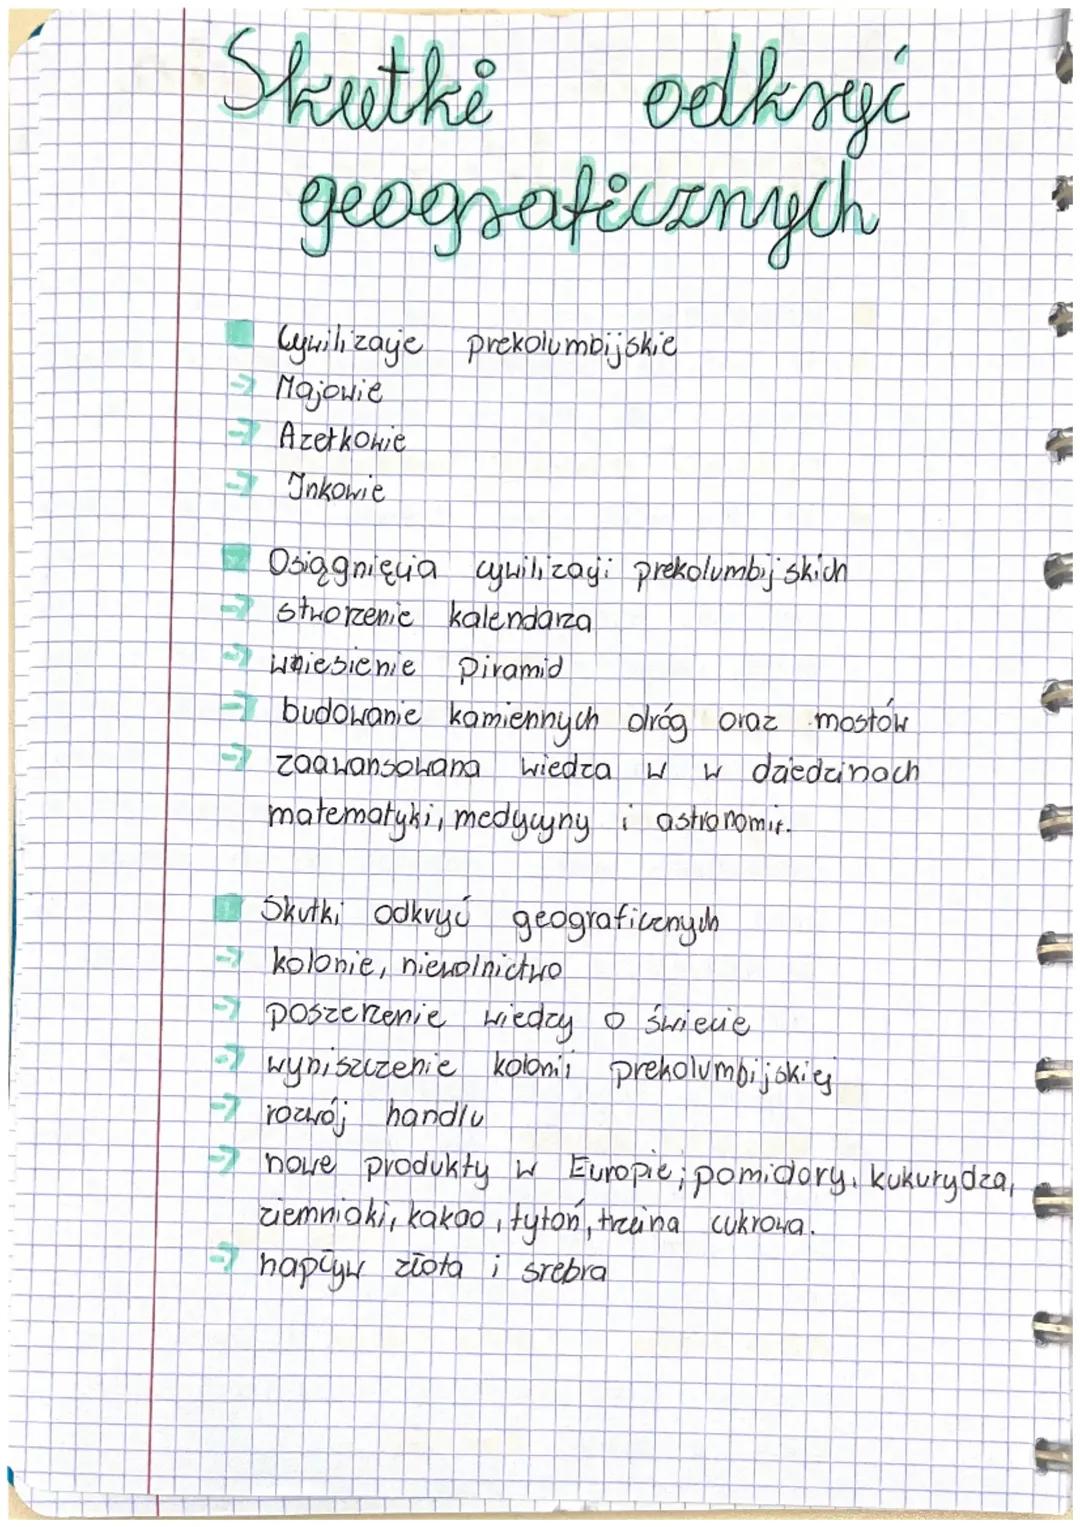 Skutki odkryć
geograficznych
Cywilizacje prekolumbijskie
→ Majowie
→ Aztekowie
→ Inkowie
Osiągnięcia cywilizacji prekolumbijskich
→ stworzenie kalendarza
→ wniesienie piramid
→ budowanie kamiennych dróg oraz mostów
→ zaawansowana wiedza w w dziedzinach
matematyki, medycyny i astronomii.
Skutki odkryć geograficznych
→ kolonie, niewolnictwo
→ poszerzenie wiedzy o świecie
→ wyniszczenie kolonii prekolumbijskiej
→ rozwój handlu
→ nowe produkty w Europie; pomidory, kukurydza,
ziemniaki, kakao, tytoń, trzcina cukrowa.
→ napływ złota i srebra